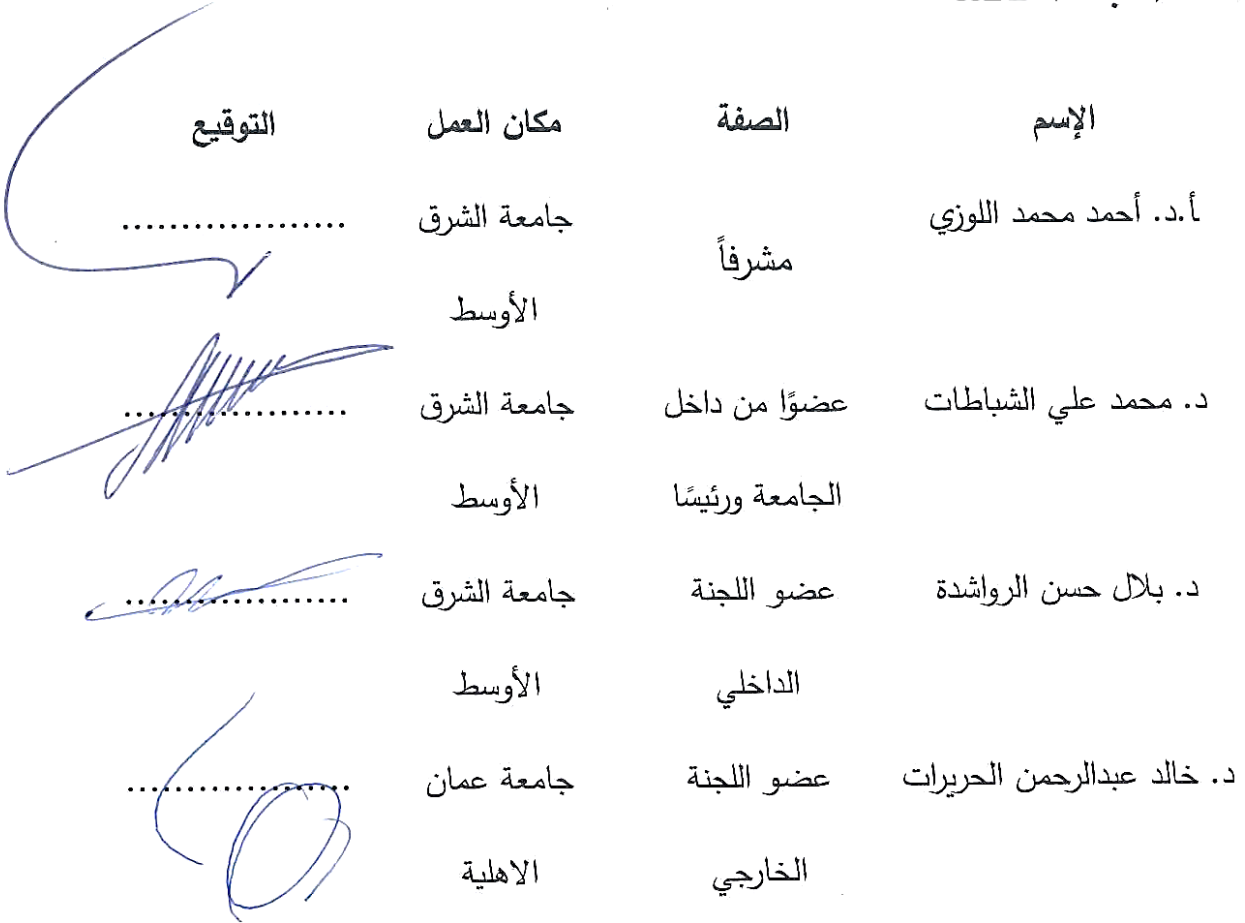 الإسم الصفة مكان العمل التوقيع
أ.د. أحمد محمد اللوزي مشرفاً جامعة الشرق ...................
الأوسط
د. محمد علي الشباطات عضوًا من داخل جامعة الشرق ...................
الجامعة ورئيسًا الأوسط
د. بلال حسن الرواشدة عضو اللجنة جامعة الشرق ...................
الداخلي الأوسط
د. خالد عبدالرحمن الحريرات عضو اللجنة جامعة عمان ...................
الخارجي الاهلية